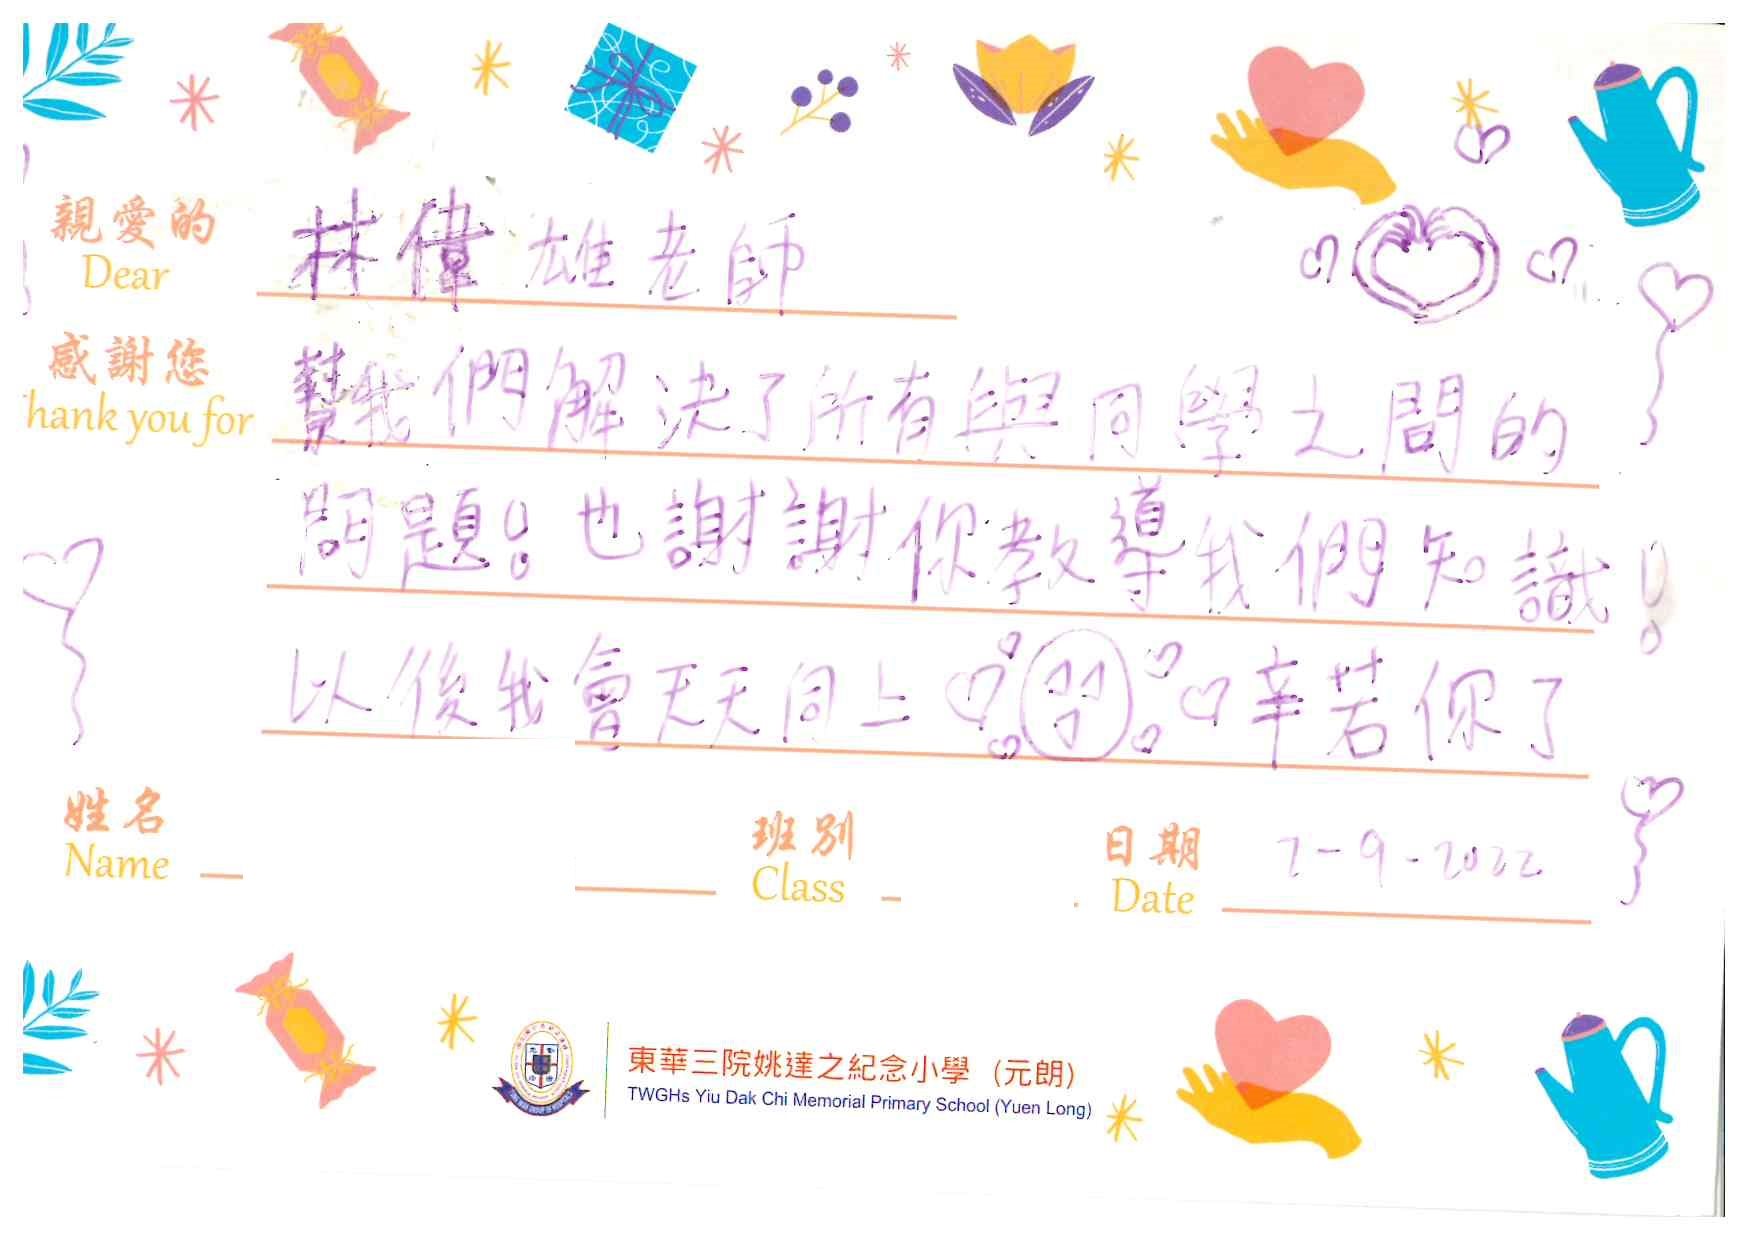 親愛的 林偉雄老師
Dear
感謝您 幫我們解決了所有與同學之間的
hank you for
問題!也謝謝你教導我們知識!
以後我會天天向上 辛苦你了
姓名 班別 日期 2-9-2022
Name Class Date
東華三院姚達之紀念小學 (元朗)
TWGHs Yiu Dak Chi Memorial Primary School (Yuen Long)